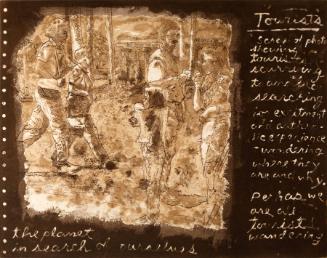 Tourists
Several photos
showing
tourists
scurrying
to and fro
searching
for excitement
wondering
where they
are and why.
Perhaps we
are all
tourists
wandering
the planet
in search of ourselves